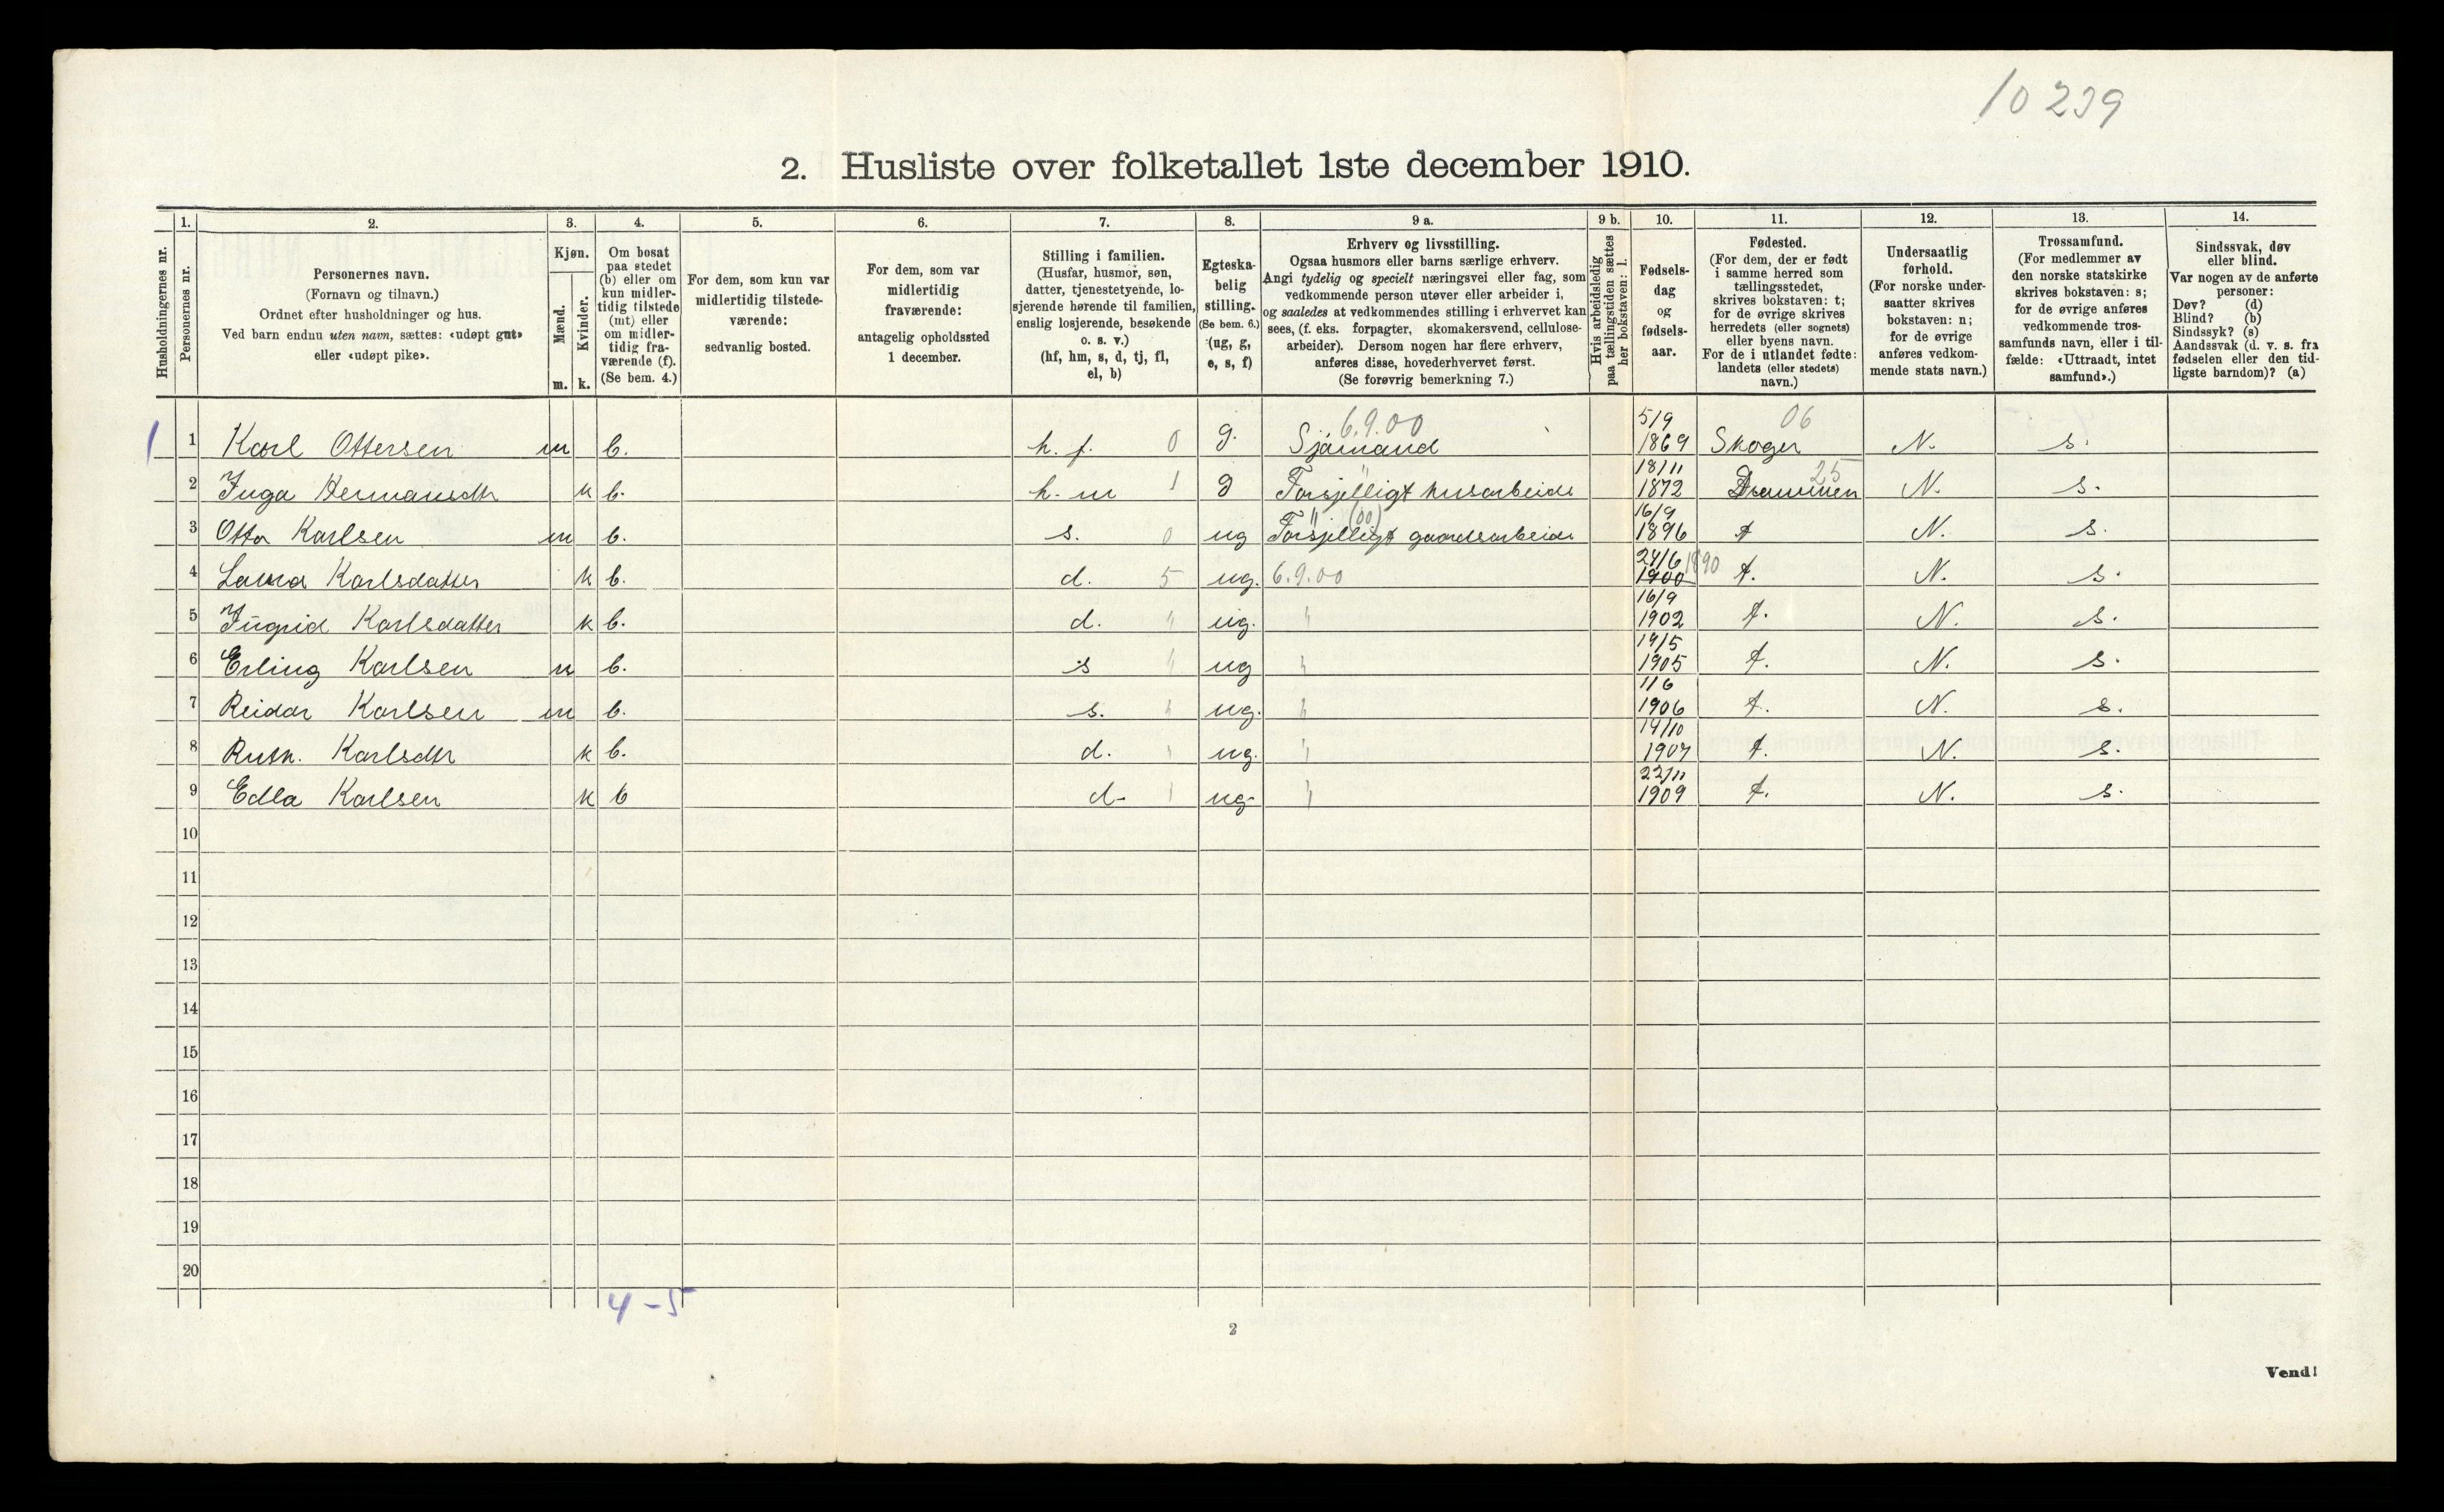 10 239
2. Husliste over folketallet 1ste december 1910.
Husholdningernes nr.
1. Personernes nr.
2. Personernes navn.
(Fornavn og tilnavn.)
Ordnet efter husholdninger og hus.
Ved barn endnu uten navn, sættes: «udøpt gut»
eller «udøpt pike».
3. Kjøn.
Mænd. m.
Kvinder. k.
4. Om bosat
paa stedet
(b) eller om
kun midler-
tidig tilstede
(mt) eller
om midler-
tidig fra-
værende (f).
(Se bem. 4.)
5. For dem, som kun var
midlertidig tilstede-
værende:
sedvanlig bosted.
6. For dem, som var
midlertidig
fraværende:
antagelig opholdssted
1 december.
7. Stilling i familien.
(Husfar, husmor, søn,
datter, tjenestetyende, lo-
sjerende hørende til familien,
enslig losjerende, besøkende
o. s. v.)
(hf, hm, s, d, tj, fl,
el, b)
8. Egteska-
belig
stilling.
(Se bem. 6.)
(ug, g,
e, s, f)
9 a. Erhverv og livsstilling.
Ogsaa husmors eller barns særlige erhverv.
Angi tydelig og specielt næringsvei eller fag, som
vedkommende person utøver eller arbeider i,
og saaledes at vedkommendes stilling i erhvervet kan
sees, (f. eks. forpagter, skomakersvend, cellulose-
arbeider). Dersom nogen har flere erhverv,
anføres disse, hovederhvervet først.
(Se forøvrig bemerkning 7.)
9 b. Hvis arbeidsledig
paa tællingstiden sættes
her bokstaven: l.
10. Fødsels-
dag
og
fødsels-
aar.
11. Fødested.
(For dem, der er født
i samme herred som
tællingsstedet,
skrives bokstaven: t;
for de øvrige skrives
herredets (eller sognets)
eller byens navn.
For de i utlandet fødte:
landets (eller stedets)
navn.)
12. Undersaatlig
forhold.
(For norske under-
saatter skrives
bokstaven: n;
for de øvrige
anføres vedkom-
mende stats navn.)
13. Trossamfund.
(For medlemmer av
den norske statskirke
skrives bokstaven: s;
for de øvrige anføres
vedkommende tros-
samfunds navn, eller i til-
fælde: «Uttraadt, intet
samfund».)
14. Sindssvak, døv
eller blind.
Var nogen av de anførte
personer:
Døv? (d)
Blind? (b)
Sindssyk? (s)
Aandssvak (d. v. s. fra
fødselen eller den tid-
ligste barndom)? (a)
6.9.00 5/9 06
1 1 Karl Ottersen m b. h. f. 0 g. Sjömand 1869 Skoger N. s.
18/11 25
2 Inga Hermansdtr k b. h. m 1 g Forsjelligt husarbeide 1872 Drammen N. s.
" (00) 16/9
3 Otto Karlsen m b. s. 0 ug Forsjelligt gaardsarbeide 1896 t N. s.
24/6
4 Laura Karlsdatter k b. d. 5 ug. 6.9.00 1900 1890 t. N. s.
16/9
5 Ingrid Karlsdatter k b. d. " ug. " 1902 t. N. s.
19/5
6 Erling Karlsen m b. s " ug " 1905 t. N. s.
1/6
7 Reidar Karlsen m b. s. " ug. " 1906 t. N. s.
14/10
8 Ruth. Karlsdtr k b. d. " ug. " 1907 t. N. s.
22/11
9 Edla Karlsen k b d- " ug- " 1909 t. N. s.
10
11
12
13
14
15
16
17
18
19
20
4 - 5
2
Vend!